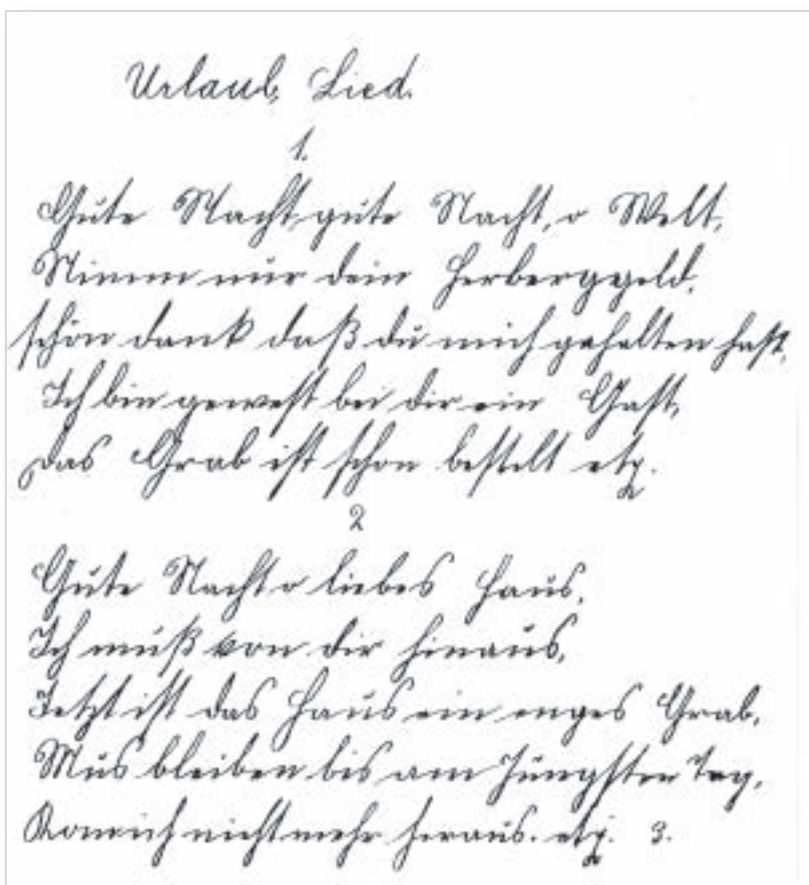 Urlaub, Lied.
1.
Gute Nacht, gute Nacht, o Welt,
Nimm nur dein Herberggeld,
schön dank daß du mich gehalten hast,
Ich bin gewest bei dir ein Gast,
das Grab ist schon bestelt etz.
2
Gute Nacht o liebes Haus,
Ich muß von dir hinaus,
Jetzt ist das Haus ein enges Grab,
Mus bleiben bis am Jüngsten Tag,
nicht mehr heraus. etz. 3.